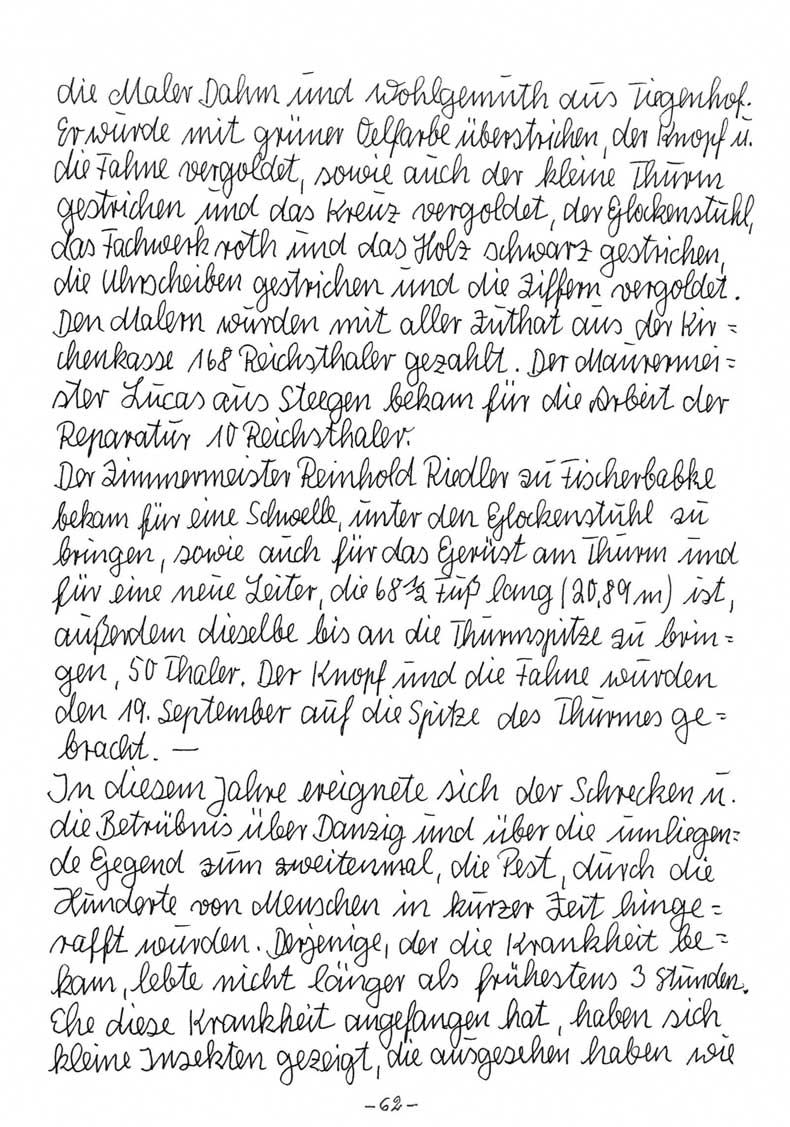 die Maler Dahm und Wohlgemuth aus Tiegenhof.
Er wurde mit grüner Oelfarbe überstrichen, der Knopf u.
die Fahne vergoldet, sowie auch der kleine Thurm
gestrichen und das Kreuz vergoldet, der Glockenstuhl,
das Fachwerk roth und das Holz schwarz gestrichen,
die Uhrscheiben gestrichen und die Ziffern vergoldet.
Den Malern wurden mit aller Zuthat aus der Kir=
chenkasse 168 Reichsthaler gezahlt. Der Maurermei=
ster Lucas aus Steegen bekam für die Arbeit der
Reparatur 10 Reichsthaler.
Der Zimmermeister Reinhold Riedler zu Fischerbabke
bekam für eine Schwelle, unter den Glockenstuhl zu
bringen, sowie auch für das Gerüst am Thurm und
für eine neue Leiter, die 68 1/2 Fuß lang (20,89 m) ist,
außerdem dieselbe bis an die Thurmspitze zu brin=
gen, 50 Thaler. Der Knopf und die Fahne wurden
den 19. September auf die Spitze des Thurmes ge=
bracht. —
In diesem Jahre ereignete sich der Schrecken u.
die Betrübnis über Danzig und über die umliegen=
de Gegend zum zweitenmal, die Pest, durch die
Hunderte von Menschen in kurzer Zeit hinge=
rafft wurden. Derjenige, der die Krankheit be=
kam, lebte nicht länger als frühestens 3 Stunden.
Ehe diese Krankheit angefangen hat, haben sich
kleine Insekten gezeigt, die ausgesehen haben wie
-62-